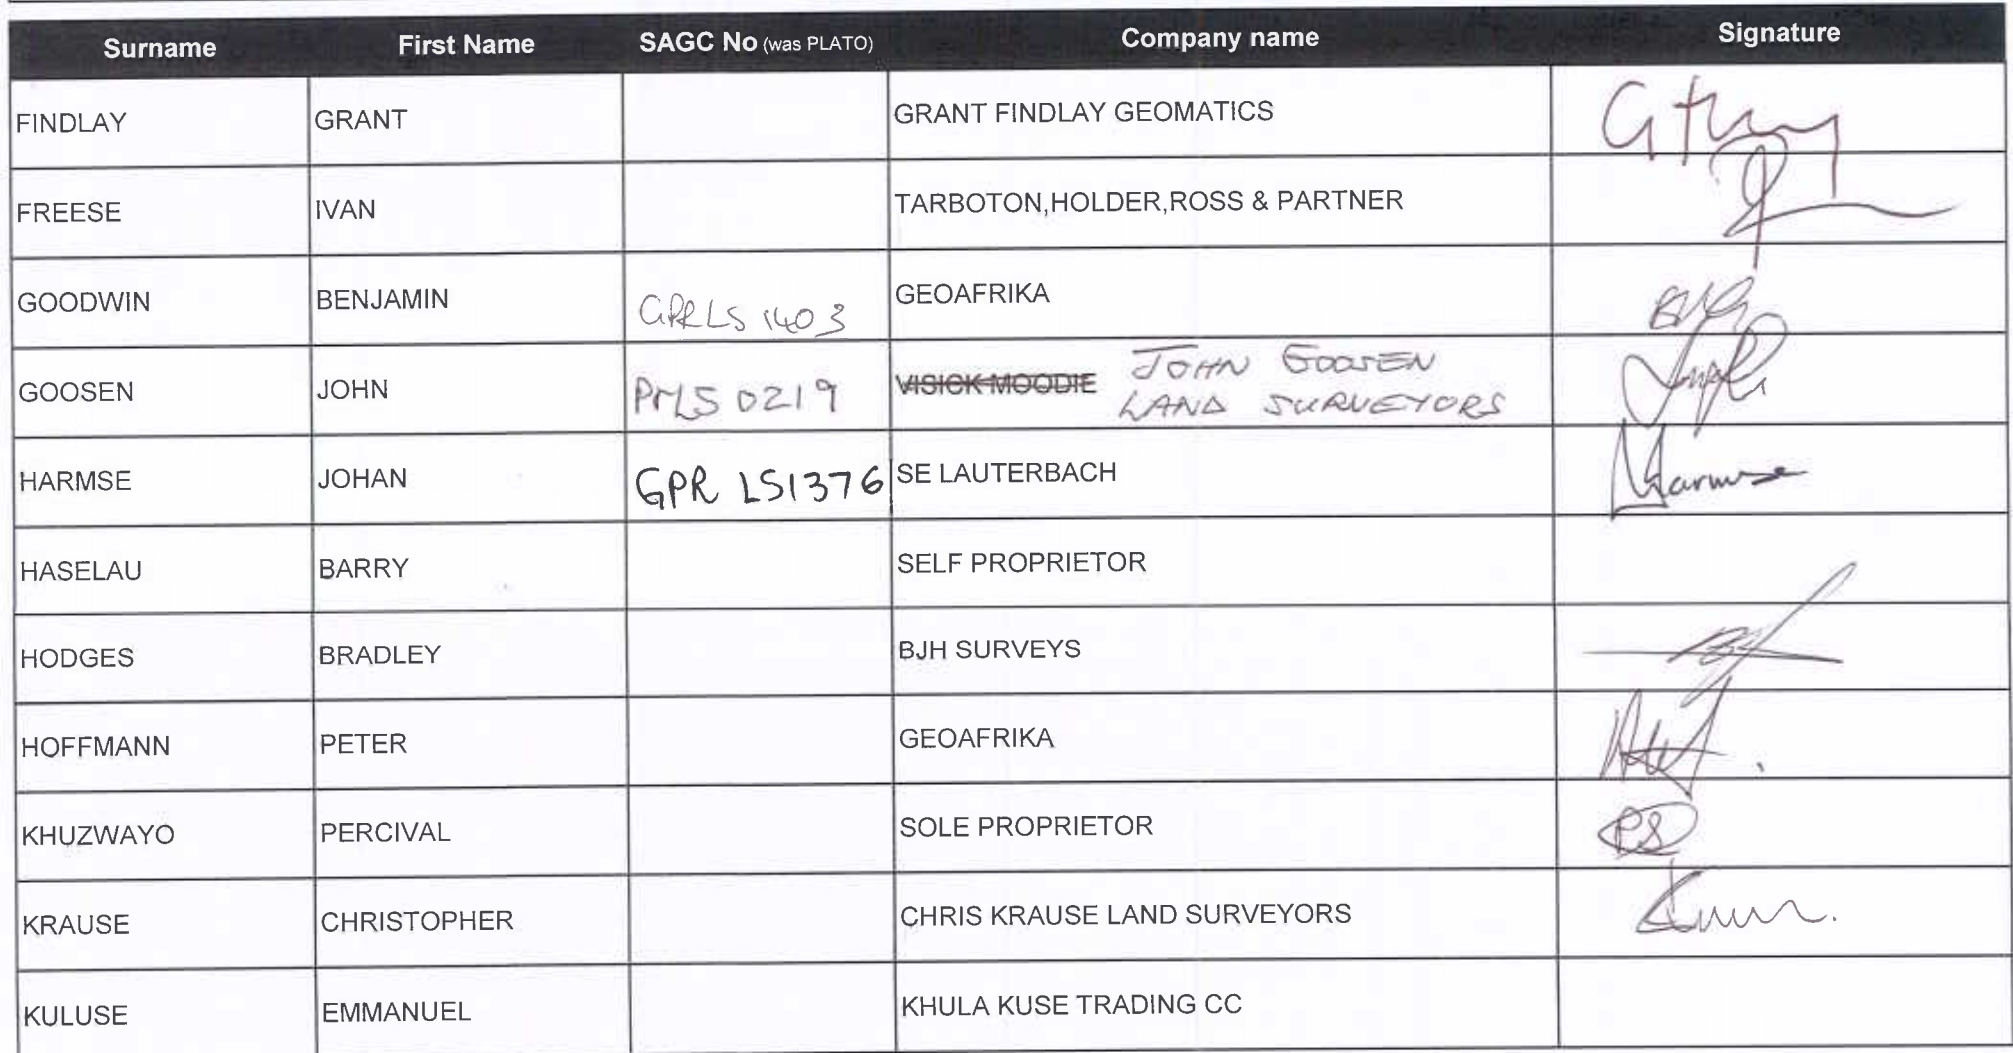 Surname First Name SAGC No (was PLATO) Company name Signature
FINDLAY GRANT GRANT FINDLAY GEOMATICS
FREESE IVAN TARBOTON,HOLDER,ROSS & PARTNER
GOODWIN BENJAMIN GPRLS 1403 GEOAFRIKA
GOOSEN JOHN PMLS 0219 VISICK MOODIE JOHN GOOSEN
LAND SURVEYORS
HARMSE JOHAN GPR LS1376 SE LAUTERBACH Harmse
HASELAU BARRY SELF PROPRIETOR
HODGES BRADLEY BJH SURVEYS
HOFFMANN PETER GEOAFRIKA
KHUZWAYO PERCIVAL SOLE PROPRIETOR
KRAUSE CHRISTOPHER CHRIS KRAUSE LAND SURVEYORS
KULUSE EMMANUEL KHULA KUSE TRADING CC